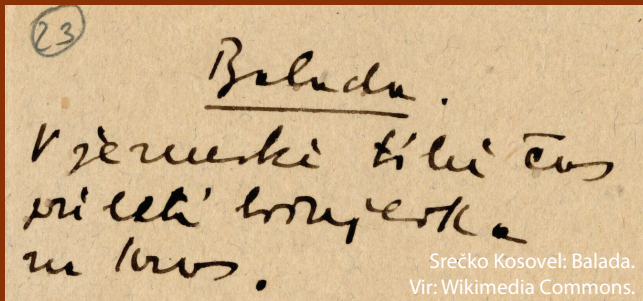 23
Balada.
V jesenski tihi čas
prileti brinjevka
na Kras.
Srečko Kosovel: Balada.
Vir: Wikimedia Commons.